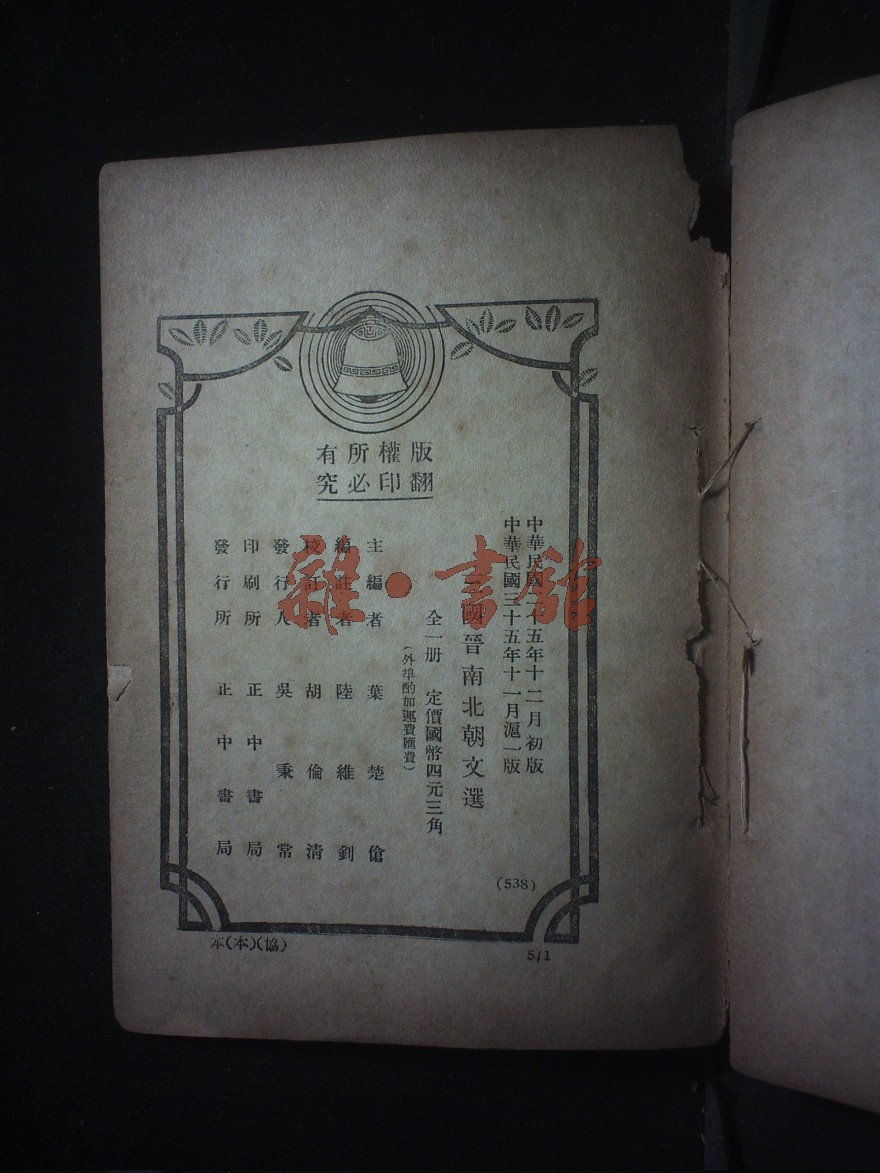 版權所有
翻印必究
中華民國二十五年十二月初版
中華民國三十五年十一月滬一版
三國晉南北朝文選
全一册 定價國幣四元三角
(外埠酌加運費匯費)
主編者 葉楚傖
編註者 陸維釗
校訂者 胡倫清
發行人 吳秉常
印刷所 正中書局
發行所 正中書局
(538)
本(本)(協)
5/1
雜·書館